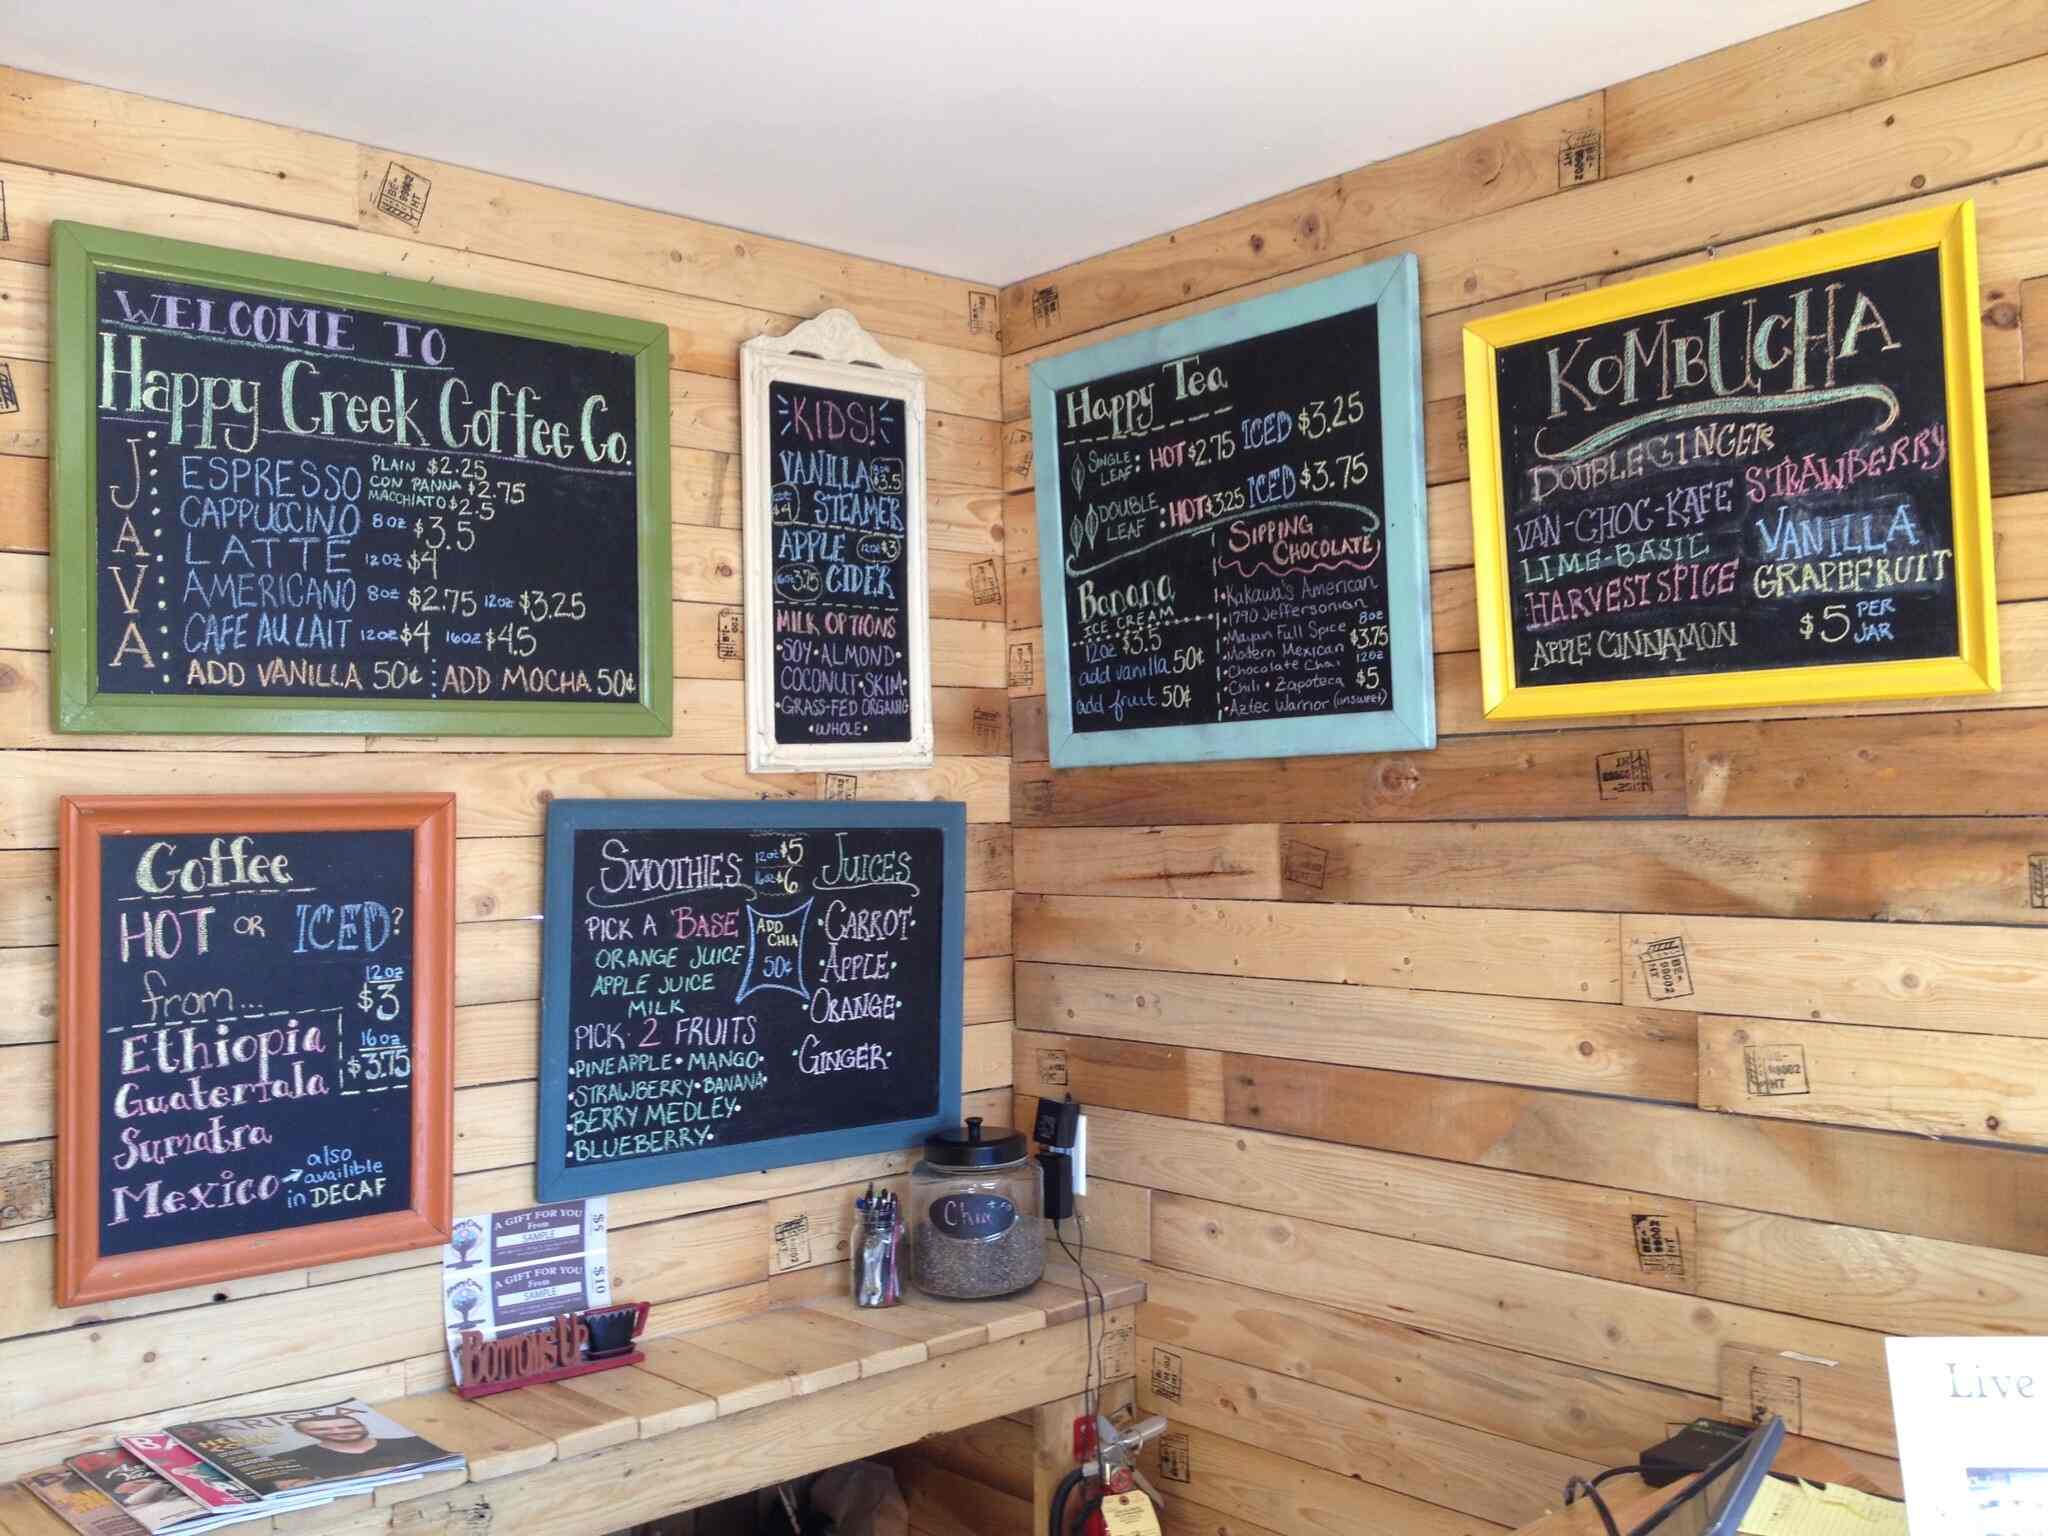 WELCOME TO
Happy Creek Coffee Co.
JAVA
ESPRESSO PLAIN $2.25
CON PANNA $2.75
MACCHIATO $2.5
CAPPUCCINO 8oz $3.5
LATTE 12oz $4
AMERICANO 8oz $2.75 12oz $3.25
CAFE AU LAIT 12oz $4 16oz $4.5
ADD VANILLA 50¢ ADD MOCHA 50¢
KIDS!
VANILLA 8oz $3.5
12oz $4 STEAMER
APPLE 12oz $3
16oz 3.75 CIDER
MILK OPTIONS
•SOY•ALMOND•
COCONUT•SKIM•
•GRASS-FED ORGANIC
•WHOLE•
Happy Tea
SINGLE LEAF: HOT $2.75 ICED $3.25
DOUBLE LEAF: HOT $3.25 ICED $3.75
Banana
ICE CREAM
12oz $3.5
add vanilla 50¢
add fruit 50¢
SIPPING
CHOCOLATE
•Kakawa's American
•1790 Jeffersonian
•Mayan Full Spice 8oz
•Modern Mexican $3.75
•Chocolate Chai 12oz
•Chili • Zapoteca $5
•Aztec Warrior (unsweet)
KOMBUCHA
DOUBLE GINGER
STRAWBERRY
VAN-CHOC-KAFE
VANILLA
LIME-BASIL
GRAPEFRUIT
HARVEST SPICE
$5 PER JAR
APPLE CINNAMON
Coffee
HOT OR ICED?
from...
12oz
$3
16oz
$3.75
Ethiopia
Guatemala
Sumatra
Mexico → also
availible
in DECAF
SMOOTHIES 12oz $5
16oz $6
PICK A BASE
ORANGE JUICE
APPLE JUICE
MILK
ADD
CHIA
50¢
PICK•2 FRUITS
•PINEAPPLE•MANGO•
•STRAWBERRY•BANANA•
•BERRY MEDLEY•
•BLUEBERRY•
JUICES
•CARROT•
•APPLE•
•ORANGE•
•GINGER•
Chia
A GIFT FOR YOU
From
SAMPLE
$5
A GIFT FOR YOU
From
SAMPLE
$10
BOTTOMS UP
BARISTA
Live